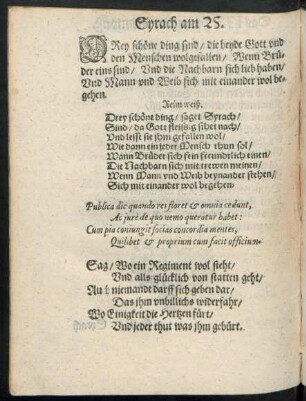 Syrach am 25.
DRey schöne ding sind / die beyde Gott vnd
den Menschen wolgefallen / Wenn Brü-
der eins sind / Vnd die Nachbarn sich lieb haben /
Vnd Mann vnd Weib sich mit einander wol be-
gehen.
Reim weiß.
Drey schöne ding / saget Syrach /
Sind / da Gott fleißig sihet nach /
Vnd lesst sie jhm gefallen wol /
Wie dann ein jeder Mensch thun sol /
Wann Brüder sich fein freundtlich einen /
Die Nachbarn sich mit trewen meinen /
Wenn Mann vnd Weib beynander stehen /
Sich mit einander wol begehen /
Publica dic quando res floret & omnia cedunt,
Ac jure de quo nemo queratur habet:
Cum pia coniungit socias concordia mentes,
Quilibet & proprium cum facit officium.
Sag / Wo ein Regiment wol steht /
Vnd alls glücklich von statten geht /
niemandt darff sich geben dar /
Das jhm vnbillichs widerfahr /
Wo Einigkeit die Hertzen fürt /
Vnd jeder thut was jhm gebürt.